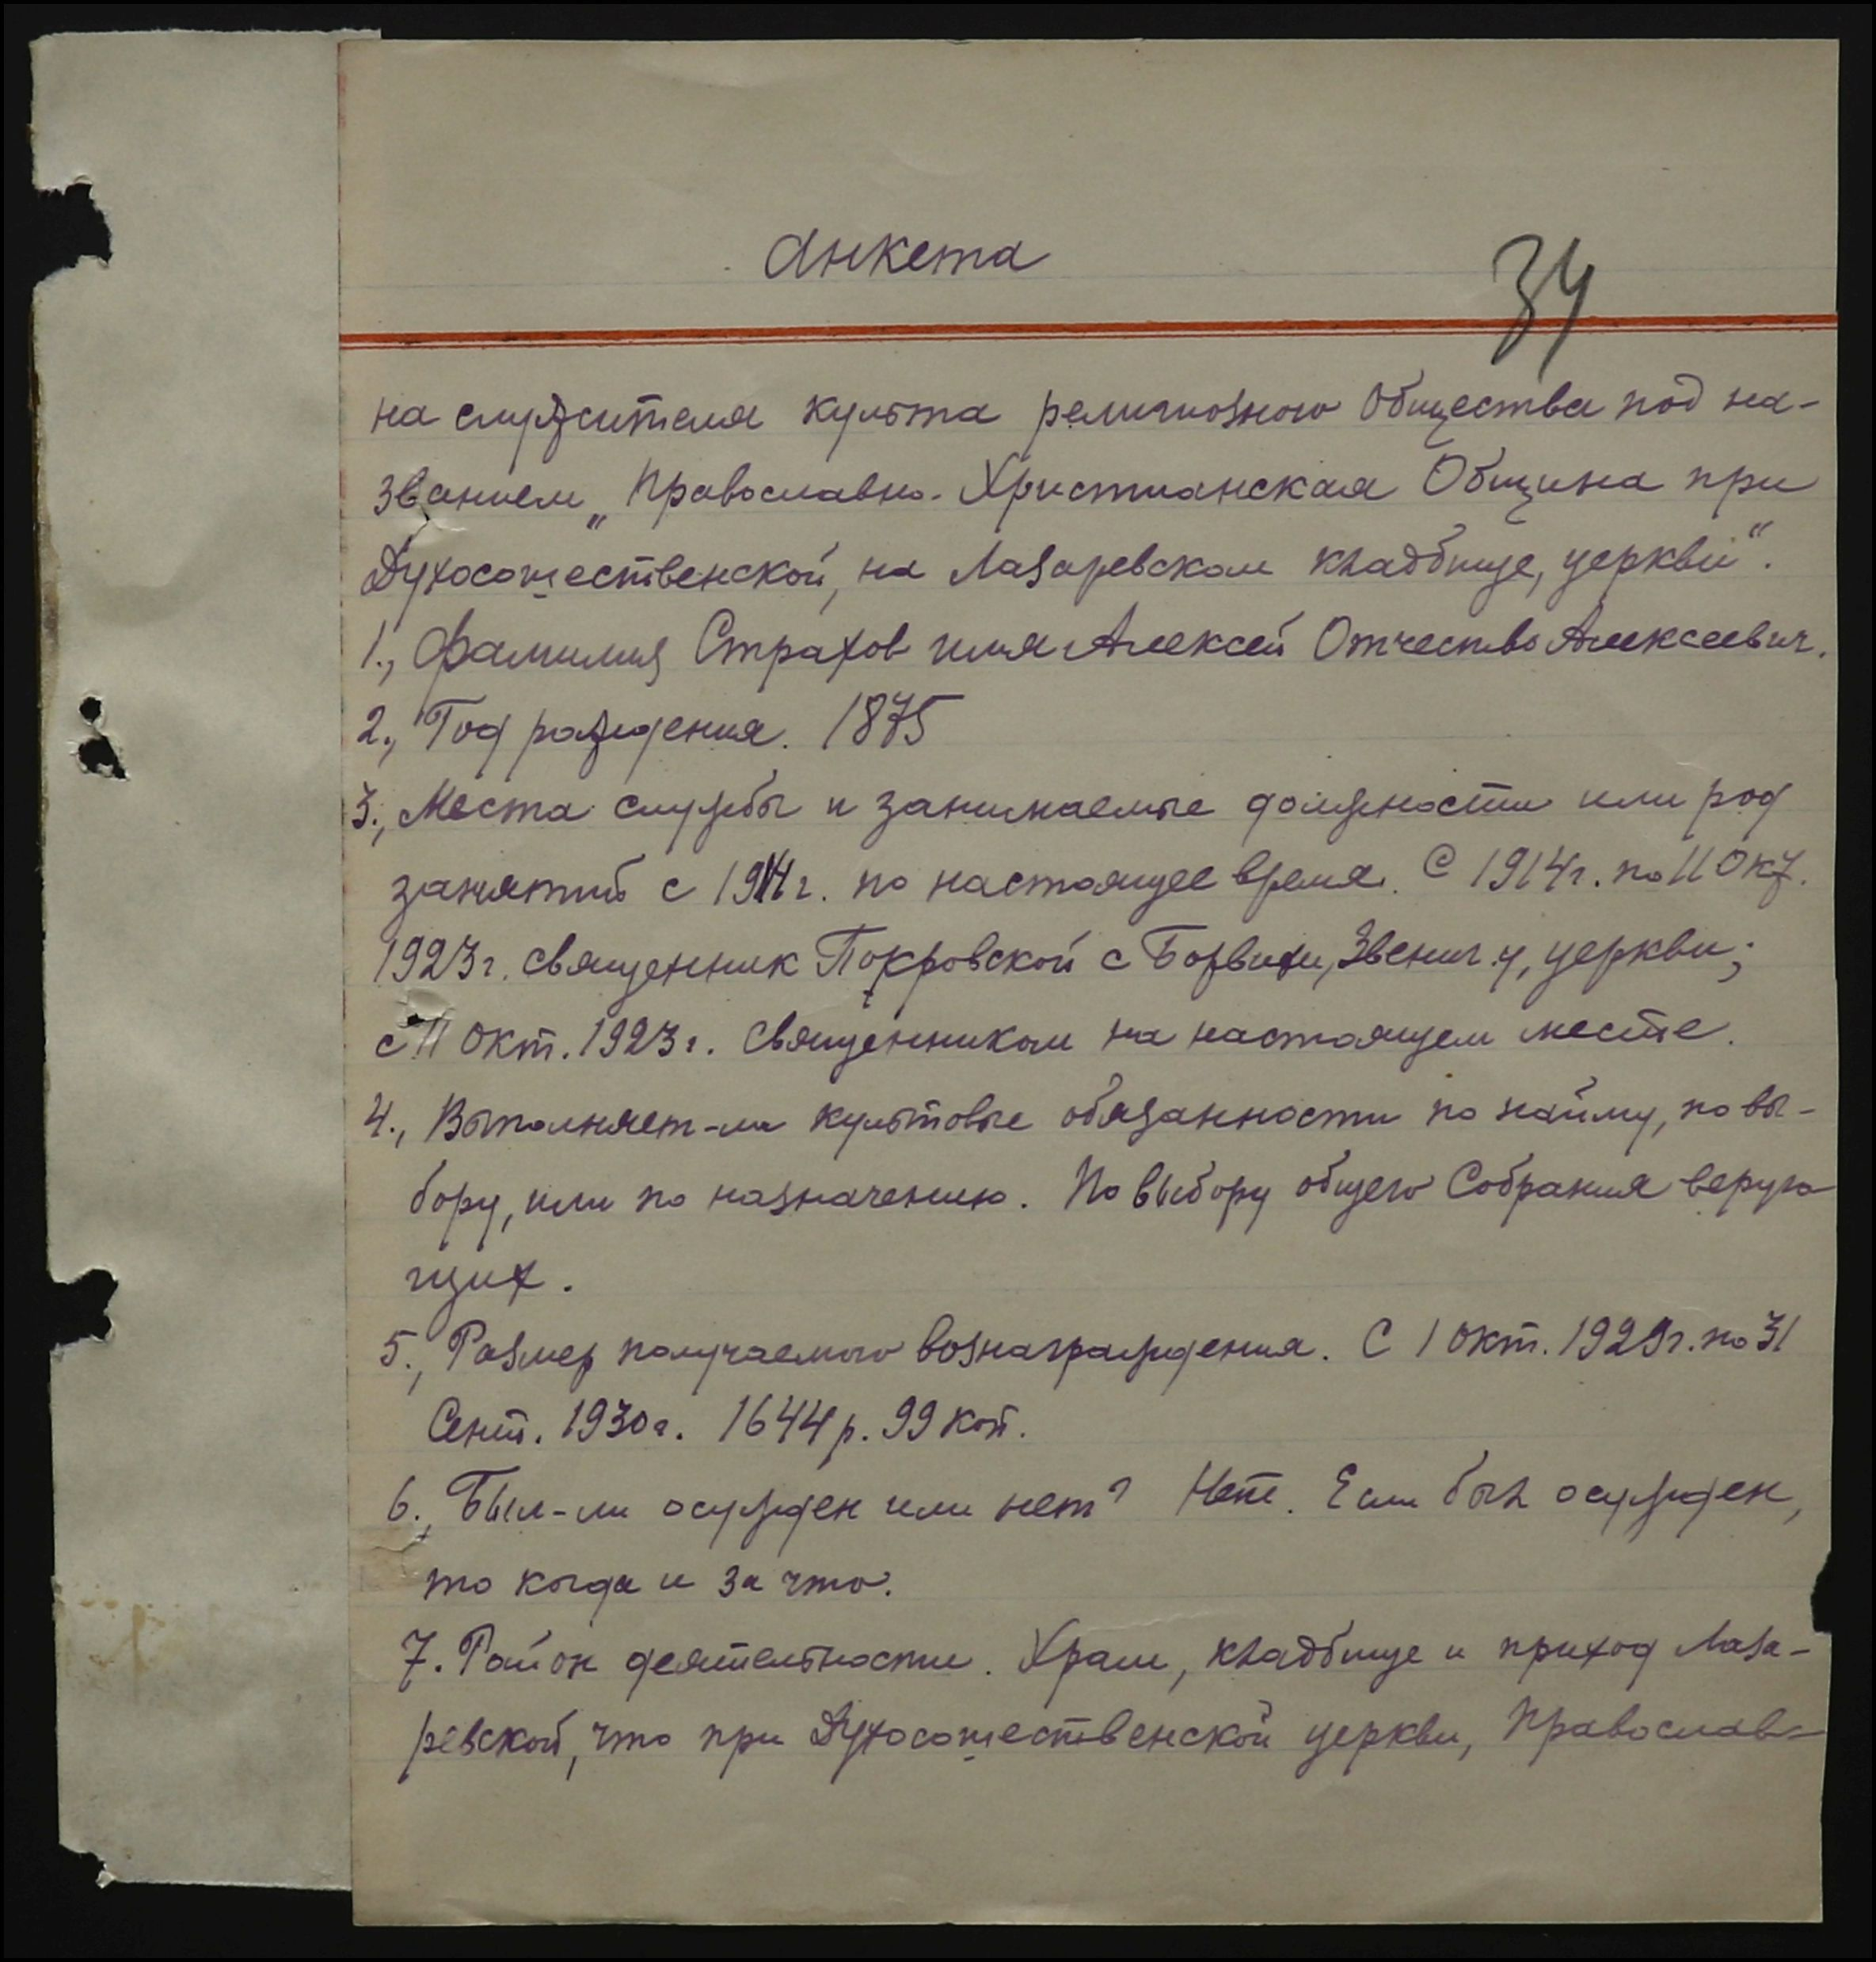 Анкета
34
на служителя культа религиозного Общества под на-
званием „Православно-Христианская Община при
Духосошественской, на Лазаревском кладбище, церкви“.
1., Фамилия Страхов имя Алексей Отчество Алексеевич.
2., Год рождения. 1875
3., Места службы и занимаемые должности или род
занятий с 1914 г. по настоящее время. С 1914 г. по 11 Окт.
1923 г. священник Покровской с Борвихи, Звениг. у, церкви;
с 11 Окт. 1923 г. Священником на настоящем месте.
4., Выполняет-ли культовые обязанности по найму, по вы-
бору, или по назначению. По выбору общего Собрания верую
щих.
5., Размер получаемого вознаграждения. С 1 Окт. 1929 г. по 31
Сент. 1930 г. 1644 р. 99 коп.
6., Был-ли осужден или нет? Нет. Если был осужден,
то когда и за что.
7. Район деятельности. Храм, кладбище и приход Лаза-
ревской, что при Духосошественской церкви, Православ-